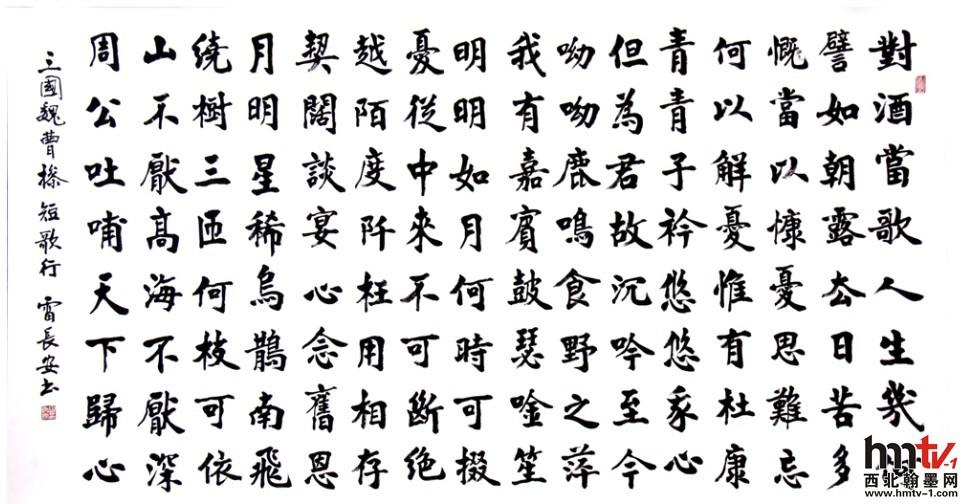 對酒當歌人生幾
譬如朝露去日苦多
慨當以慷憂思難忘
何以解憂惟有杜康
青青子衿悠悠我心
但為君故沉吟至今
呦呦鹿鳴食野之萍
我有嘉賓鼓瑟唫笙
明明如月何時可掇
憂從中來不可斷絕
越陌度阡枉用相存
契闊談宴心念舊恩
月明星稀烏鵲南飛
繞樹三匝何枝可依
山不厭高海不厭深
周公吐哺天下歸心
三國魏曹操短歌行 雷長安书
hmtv-1
西北翰墨网
www.hmtv-1.com